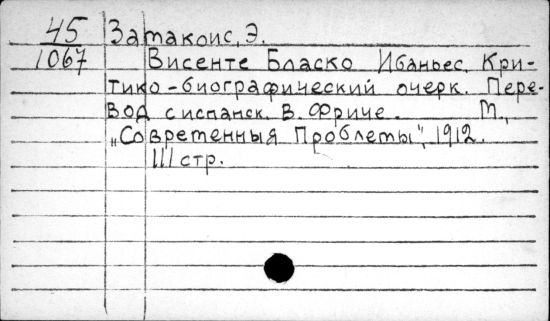 45 Замакоис, Э.
1067 Висенте Бласко Ибаньес. Кри-
тико-биографический очерк. Пере-
вод с испанск. В. Фриче. М.,
„Современныя Проблемы", 1912.
111 стр.